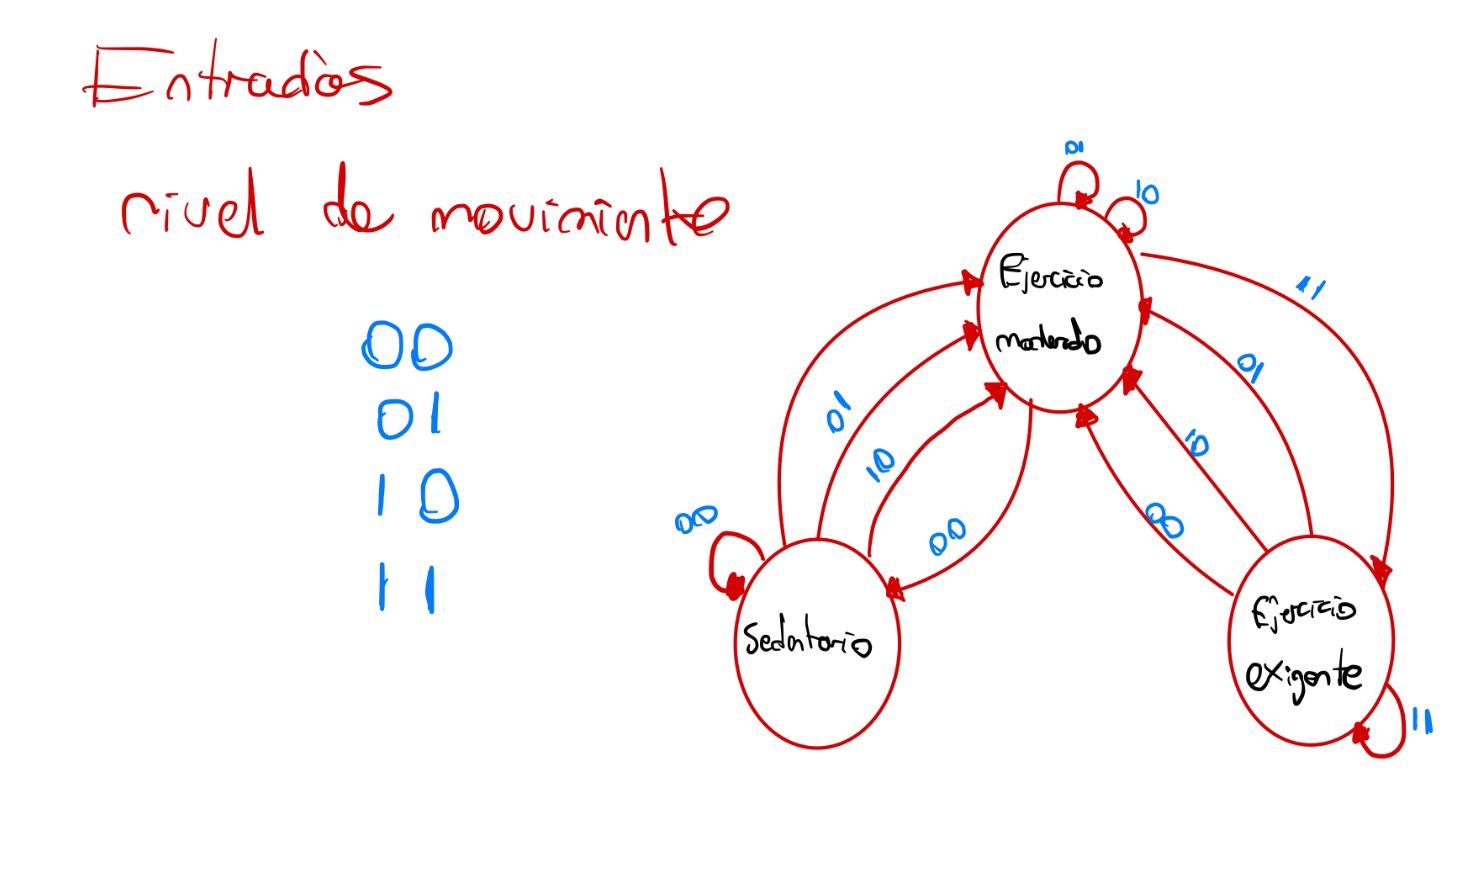 Entradas
nivel de movimiente
00
01
10
11
01
10
Ejercicio
moderado
11
01
10
00
01
10
00
00
Sedentario
Ejercicio
exigente
11